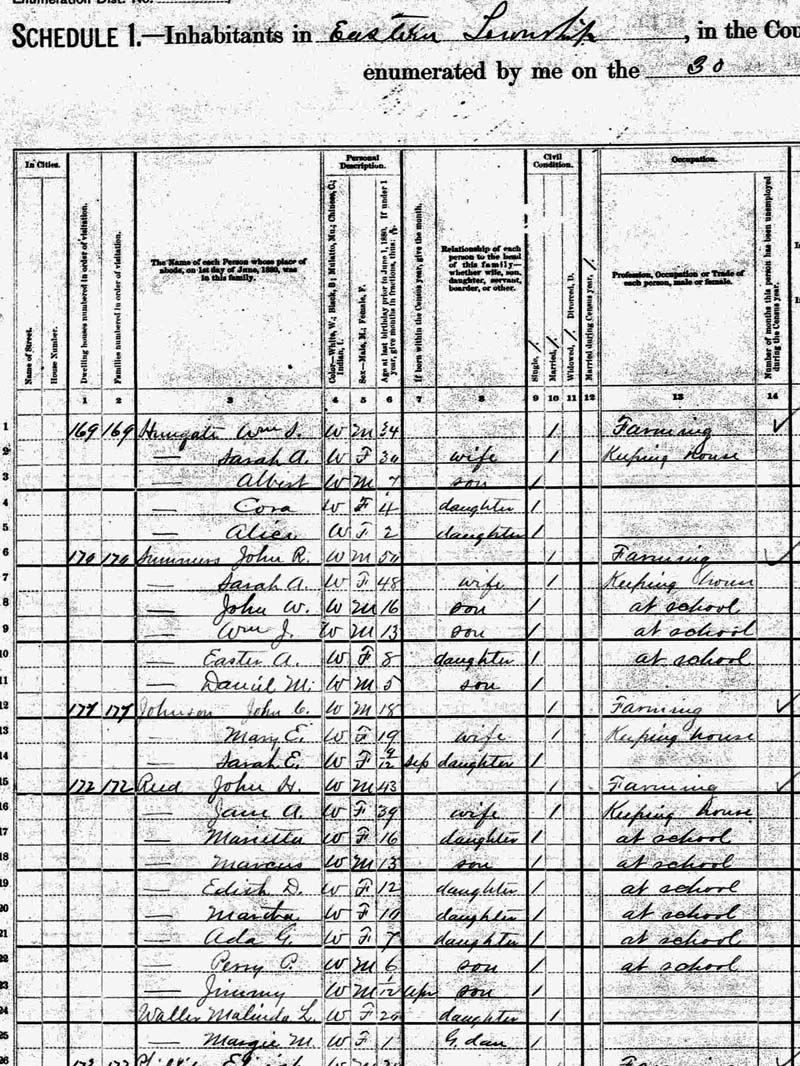 Enumeration Dist. No.
SCHEDULE 1.—Inhabitants in Eastern Township, in the Cou
enumerated by me on the 30
In Cities.
Name of Street.
House Number.
Dwelling houses numbered in order of visitation.
Families numbered in order of visitation.
The Name of each Person whose place of abode, on 1st day of June, 1880, was in this family.
Personal Description.
Color—White, W.; Black, B.; Mulatto, Mu.; Chinese, C.; Indian, I.
Sex—Male, M.; Female, F.
Age at last birthday prior to June 1, 1880. If under 1 year, give months in fractions, thus:
If born within the Census year, give the month.
Relationship of each person to the head of this family—whether wife, son, daughter, servant, boarder, or other.
Civil Condition.
Single, /
Married, /
Widowed, / Divorced, D.
Married during Census year, /
Occupation.
Profession, Occupation or Trade of each person, male or female.
Number of months this person has been unemployed during the Census year.
1 2 3 4 5 6 7 8 9 10 11 12 13 14
1 169 169 Hungate Wm S. W M 34 / Farming ✓
2 — Sarah A. W F 30 wife / Keeping house
3 — Albert W M 7 son /
4 — Cora W F 4 daughter /
5 — Alice W F 2 daughter /
6 170 170 Summers John R. W M 50 / Farming ✓
7 — Sarah A. W F 48 wife / Keeping house
8 — John W. W M 16 son / at school
9 — Wm J. W M 13 son / at school
10 — Easter A. W F 8 daughter / at school
11 — Daniel M. W M 5 son /
12 171 171 Johnson John C. W M 18 / Farming ✓
13 — Mary E. W F 19 wife / Keeping house
14 — Sarah E. W F 9/12 Sep daughter /
15 172 172 Reed John H. W M 43 / Farming ✓
16 — Jane A. W F 39 wife / Keeping house
17 — Marietta W F 16 daughter / at school
18 — Marcus W M 13 son / at school
19 — Edith D. W F 12 daughter / at school
20 — Martha W F 10 daughter / at school
21 — Ada G. W F 7 daughter / at school
22 — Perry P. W M 6 son / at school
23 — Jimmy W M 1/12 Apr son /
24 Waller Malinda L. W F 20 daughter /
25 — Margie M. W F 1 G. dau /
26